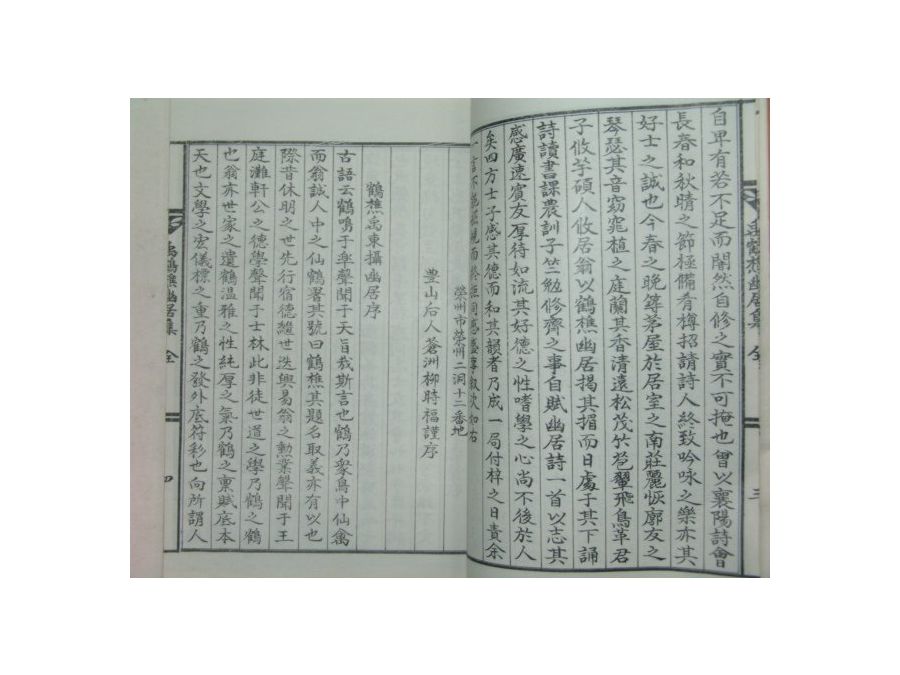 自卑有若不足而闇然自修之實不可掩也曾以襄陽詩會
長春和秋晴之節極備肴樽招請詩人終致吟咏之樂亦其
好士之誠也今春之晚縳茅屋於居室之南莊麗恢廓友之
琴瑟其音窈窕植之庭蘭其香清遠松茂竹苞翬飛鳥革君
子攸芋碩人攸居翁以鶴樵幽居揭其楣而日處于其下誦
詩讀書課農訓子竺勉修齊之事自賦幽居詩一首以志其
感廣速賓友厚待如流其好德之性嗜學之心尚不後於人
矣四方士子感其德而和其韻者乃成一局付梓之日責余
一言不
榮州市榮州二洞十二番地
豊山后人蒼洲柳時福謹序
鶴樵禹東攝幽居序
古語云鶴鳴于皐聲聞于天旨哉斯言也鶴乃衆鳥中仙禽
而翁誠人中之仙鶴署其號曰鶴樵其題名取義亦有以也
際昔休明之世先行宿德雖世迭興易翁之勲業聲聞于王
庭灘軒公之德學聲聞于士林此非徒世道之學乃鶴之鶴
也翁亦世家之遺鶴溫雅之性純厚之氣乃鶴之禀賦底本
天也文學之宏儀標之重乃鶴之發外底符彩也向所謂人
禹鶴樵幽居集 全